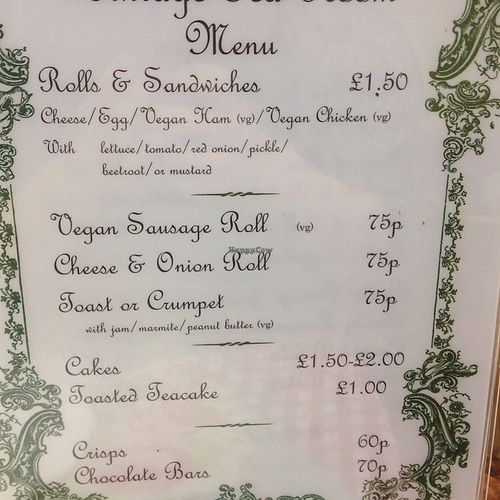 Vintage Tea Room
Menu
Rolls & Sandwiches £1.50
Cheese/Egg/Vegan Ham (vg)/Vegan Chicken (vg)
With lettuce/tomato/red onion/pickle/
beetroot/or mustard
Vegan Sausage Roll (vg) 75p
HappyCow
Cheese & Onion Roll 75p
Toast or Crumpet 75p
with jam/marmite/peanut butter (vg)
Cakes £1.50-£2.00
Toasted Teacake £1.00
Crisps 60p
Chocolate Bars 70p